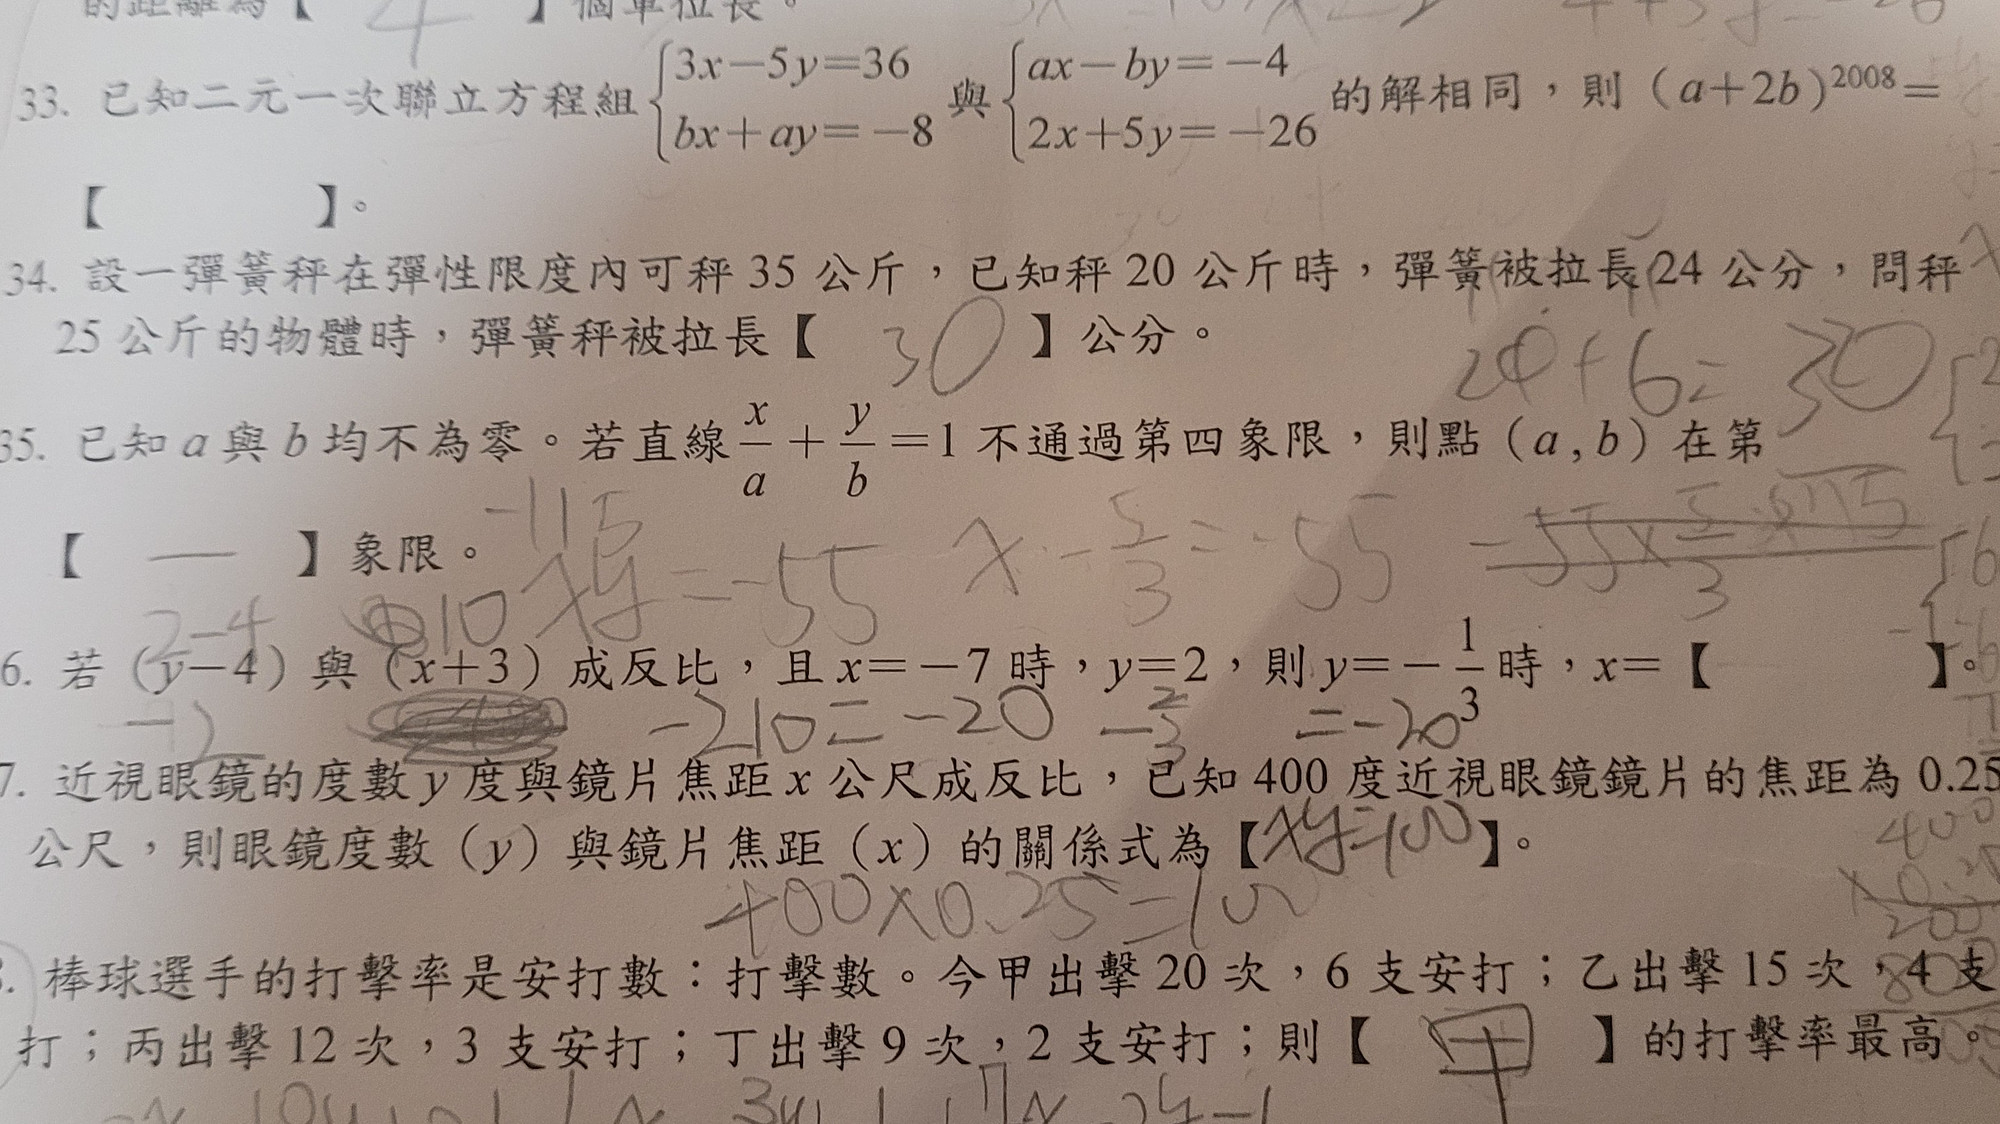 的距離為【 4 】個單位長。
33. 已知二元一次聯立方程組{3x－5y＝36 bx＋ay＝－8 與{ax－by＝－4 2x＋5y＝－26 的解相同，則（a＋2b）²⁰⁰⁸＝
【 】。
34. 設一彈簧秤在彈性限度內可秤 35 公斤，已知秤 20 公斤時，彈簧被拉長 24 公分，問秤
25 公斤的物體時，彈簧秤被拉長【 30 】公分。
24+6=30
35. 已知 a 與 b 均不為零。若直線 x/a ＋ y/b ＝1 不通過第四象限，則點（a , b）在第
【 一 】象限。
-115
xy=-55
x·-5/3=-55
2-4
10
6. 若（y－4）與（x＋3）成反比，且 x＝－7 時，y＝2，則 y＝－1/3 時，x＝【 】。
-2
-210=-20
=-20
7. 近視眼鏡的度數 y 度與鏡片焦距 x 公尺成反比，已知 400 度近視眼鏡鏡片的焦距為 0.25
公尺，則眼鏡度數（y）與鏡片焦距（x）的關係式為【xy=100】。
400×0.25=100
400
棒球選手的打擊率是安打數：打擊數。今甲出擊 20 次，6 支安打；乙出擊 15 次，4 支
打；丙出擊 12 次，3 支安打；丁出擊 9 次，2 支安打；則【 甲 】的打擊率最高。